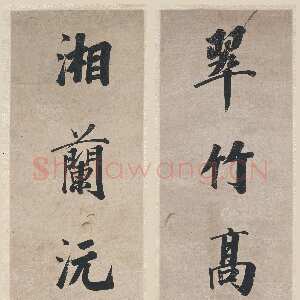 翠竹高
湘蘭沅
Shufawang.CN